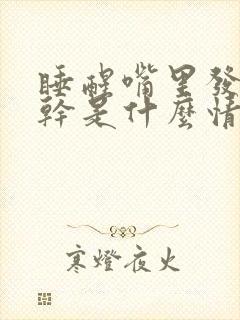 睡醒嘴里發
幹是什麼情
寒燈夜火